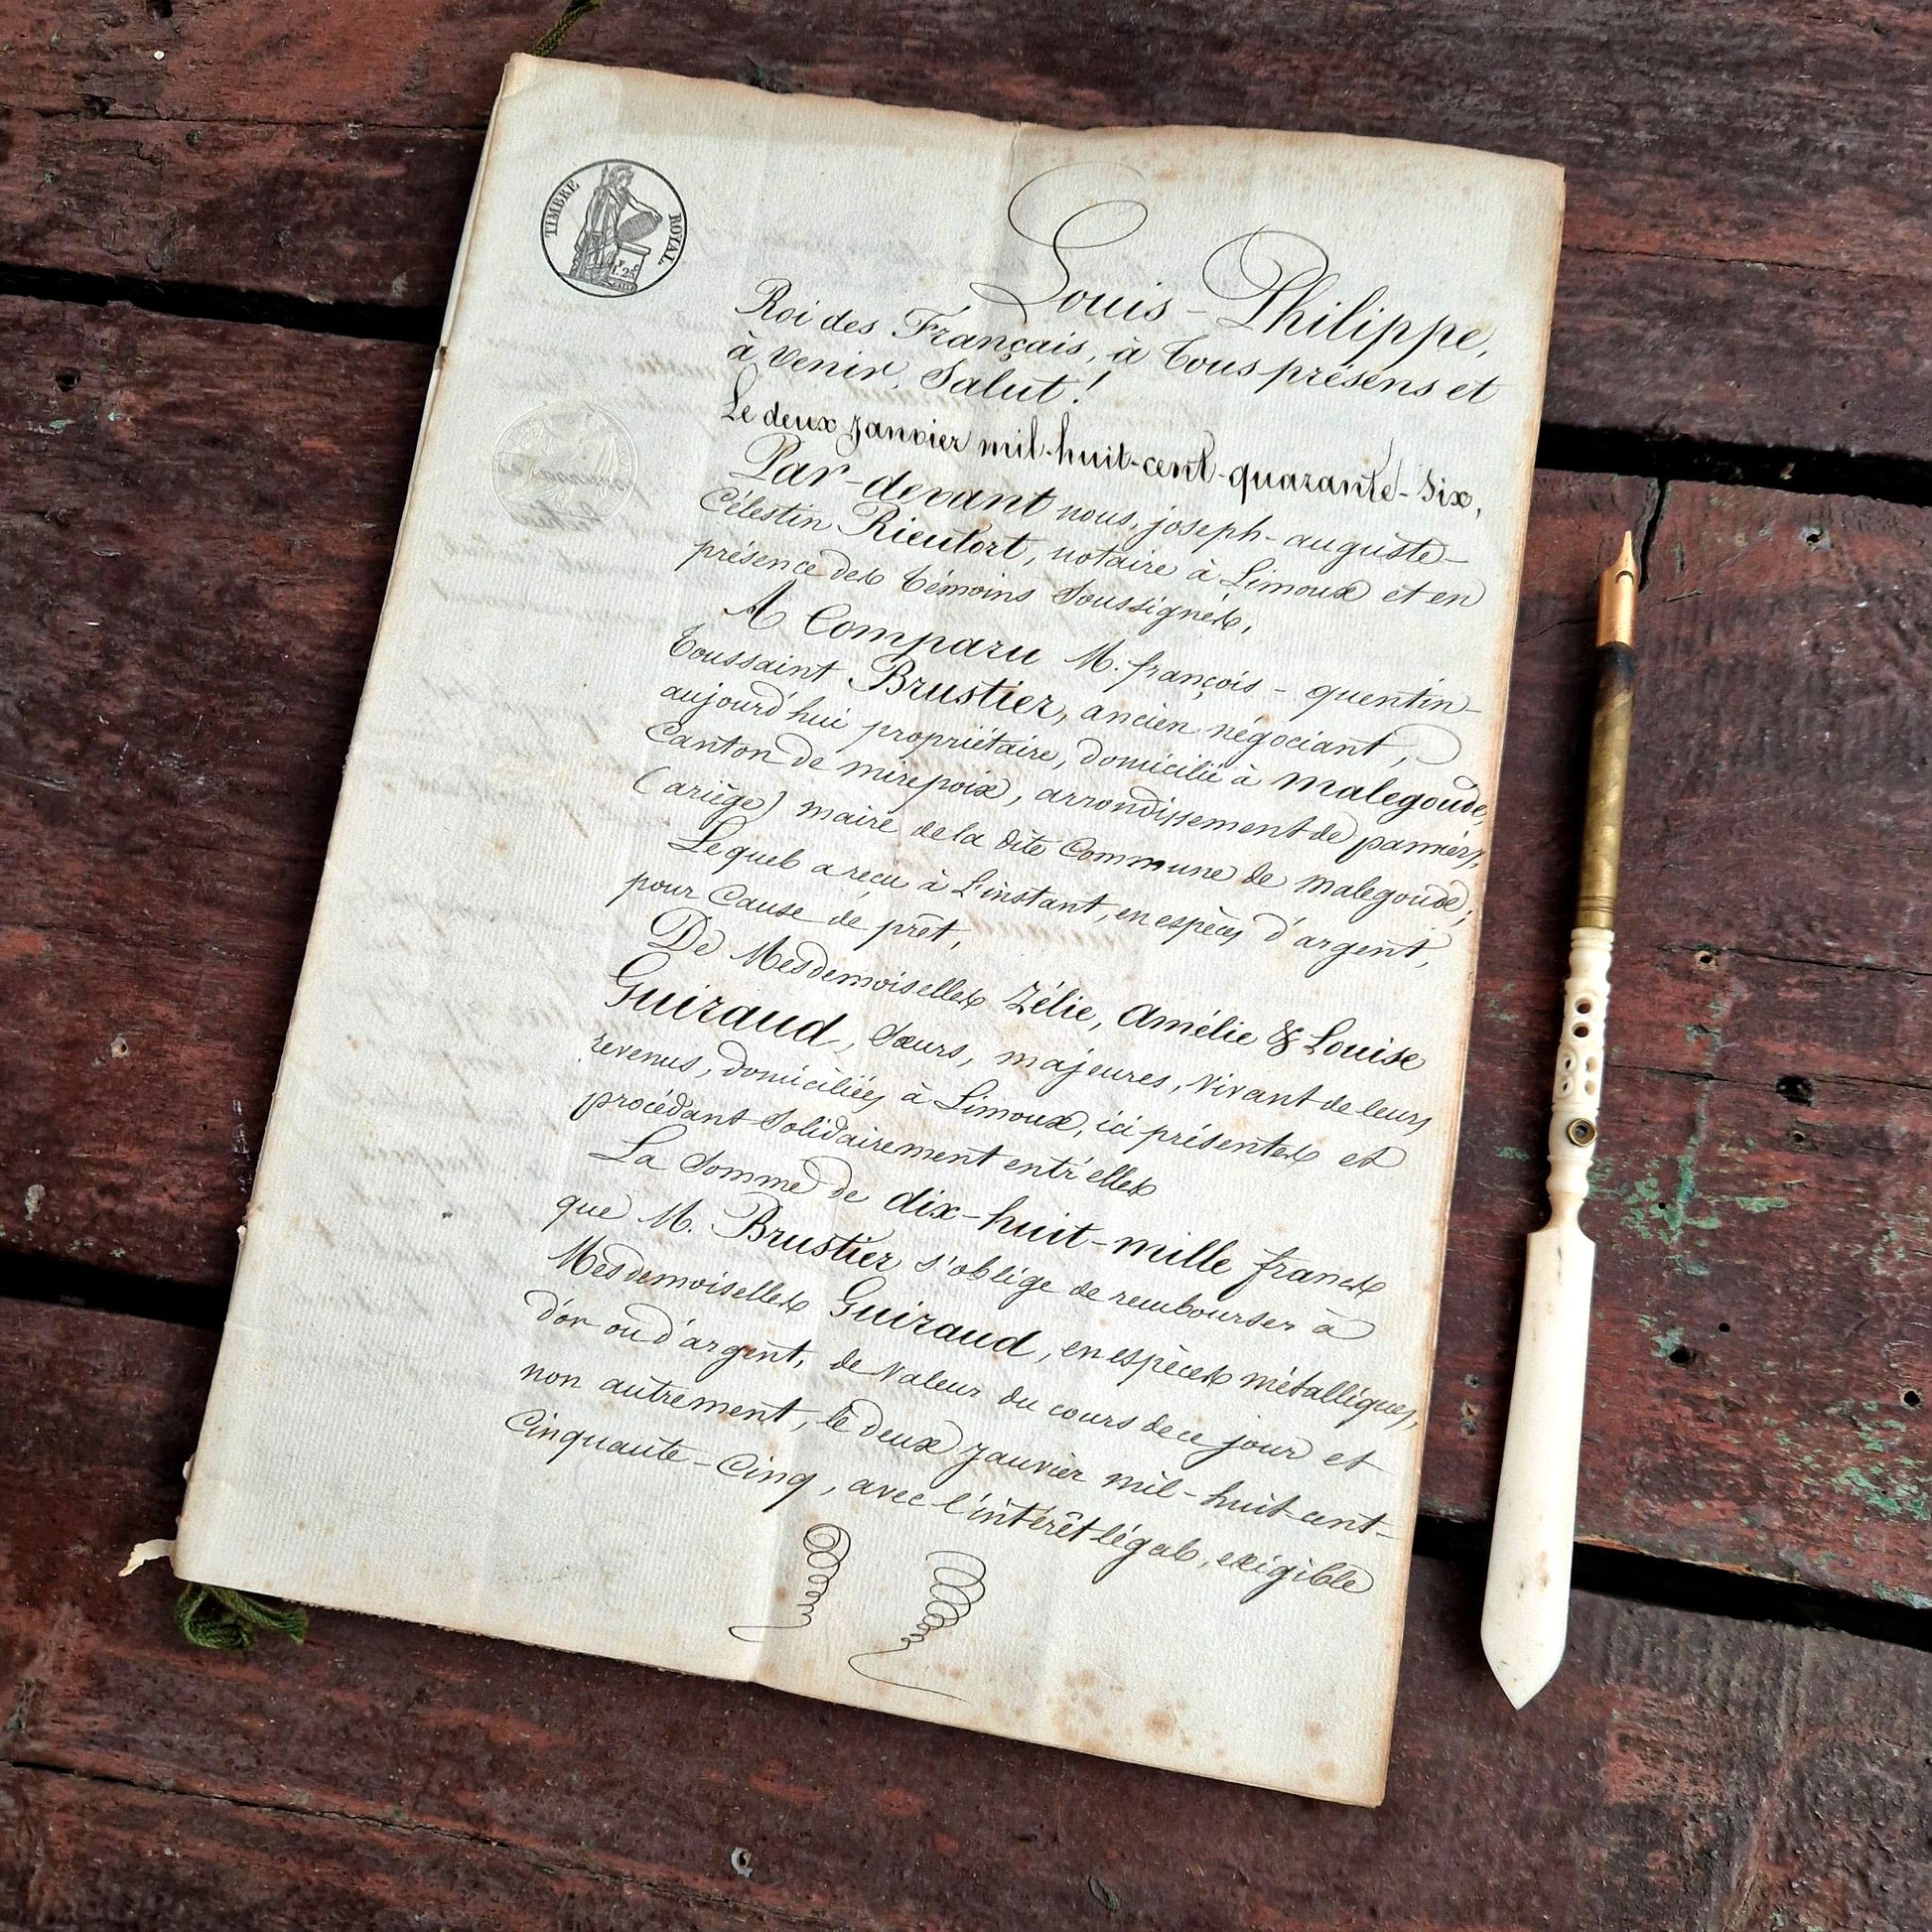 TIMBRE ROYAL
1. 25
Louis-Philippe,
Roi des Français, à tous présens et
à venir, Salut!
Le deux janvier mil-huit-cent-quarante-six,
Par-devant nous, joseph-auguste-
Célestin Rieutort, notaire à Limoux et en
présence des témoins soussignés,
A Comparu M. françois-quentin-
toussaint Brustier, ancien négociant,
aujourd'hui propriétaire, domicilié à malegoude,
Canton de mirepoix, arrondissement de pamiers,
(ariège) maire de la dite Commune de malegoude;
Lequel a reçu à l'instant, en espèces d'argent,
pour Cause de prêt,
De Mesdemoiselles Zélie, Amélie & Louise
Guiraud, sœurs, majeures, vivant de leurs
revenus, domiciliées à Limoux, ici présentes et
procédant solidairement entr'elles
La somme de dix-huit-mille francs
que M. Brustier s'oblige de rembourser à
Mesdemoiselles Guiraud, en espèces métalliques,
d'or ou d'argent, de valeur du cours de ce jour et
non autrement, le deux janvier mil-huit-cent-
Cinquante-Cinq, avec l'intérêt légal, exigible